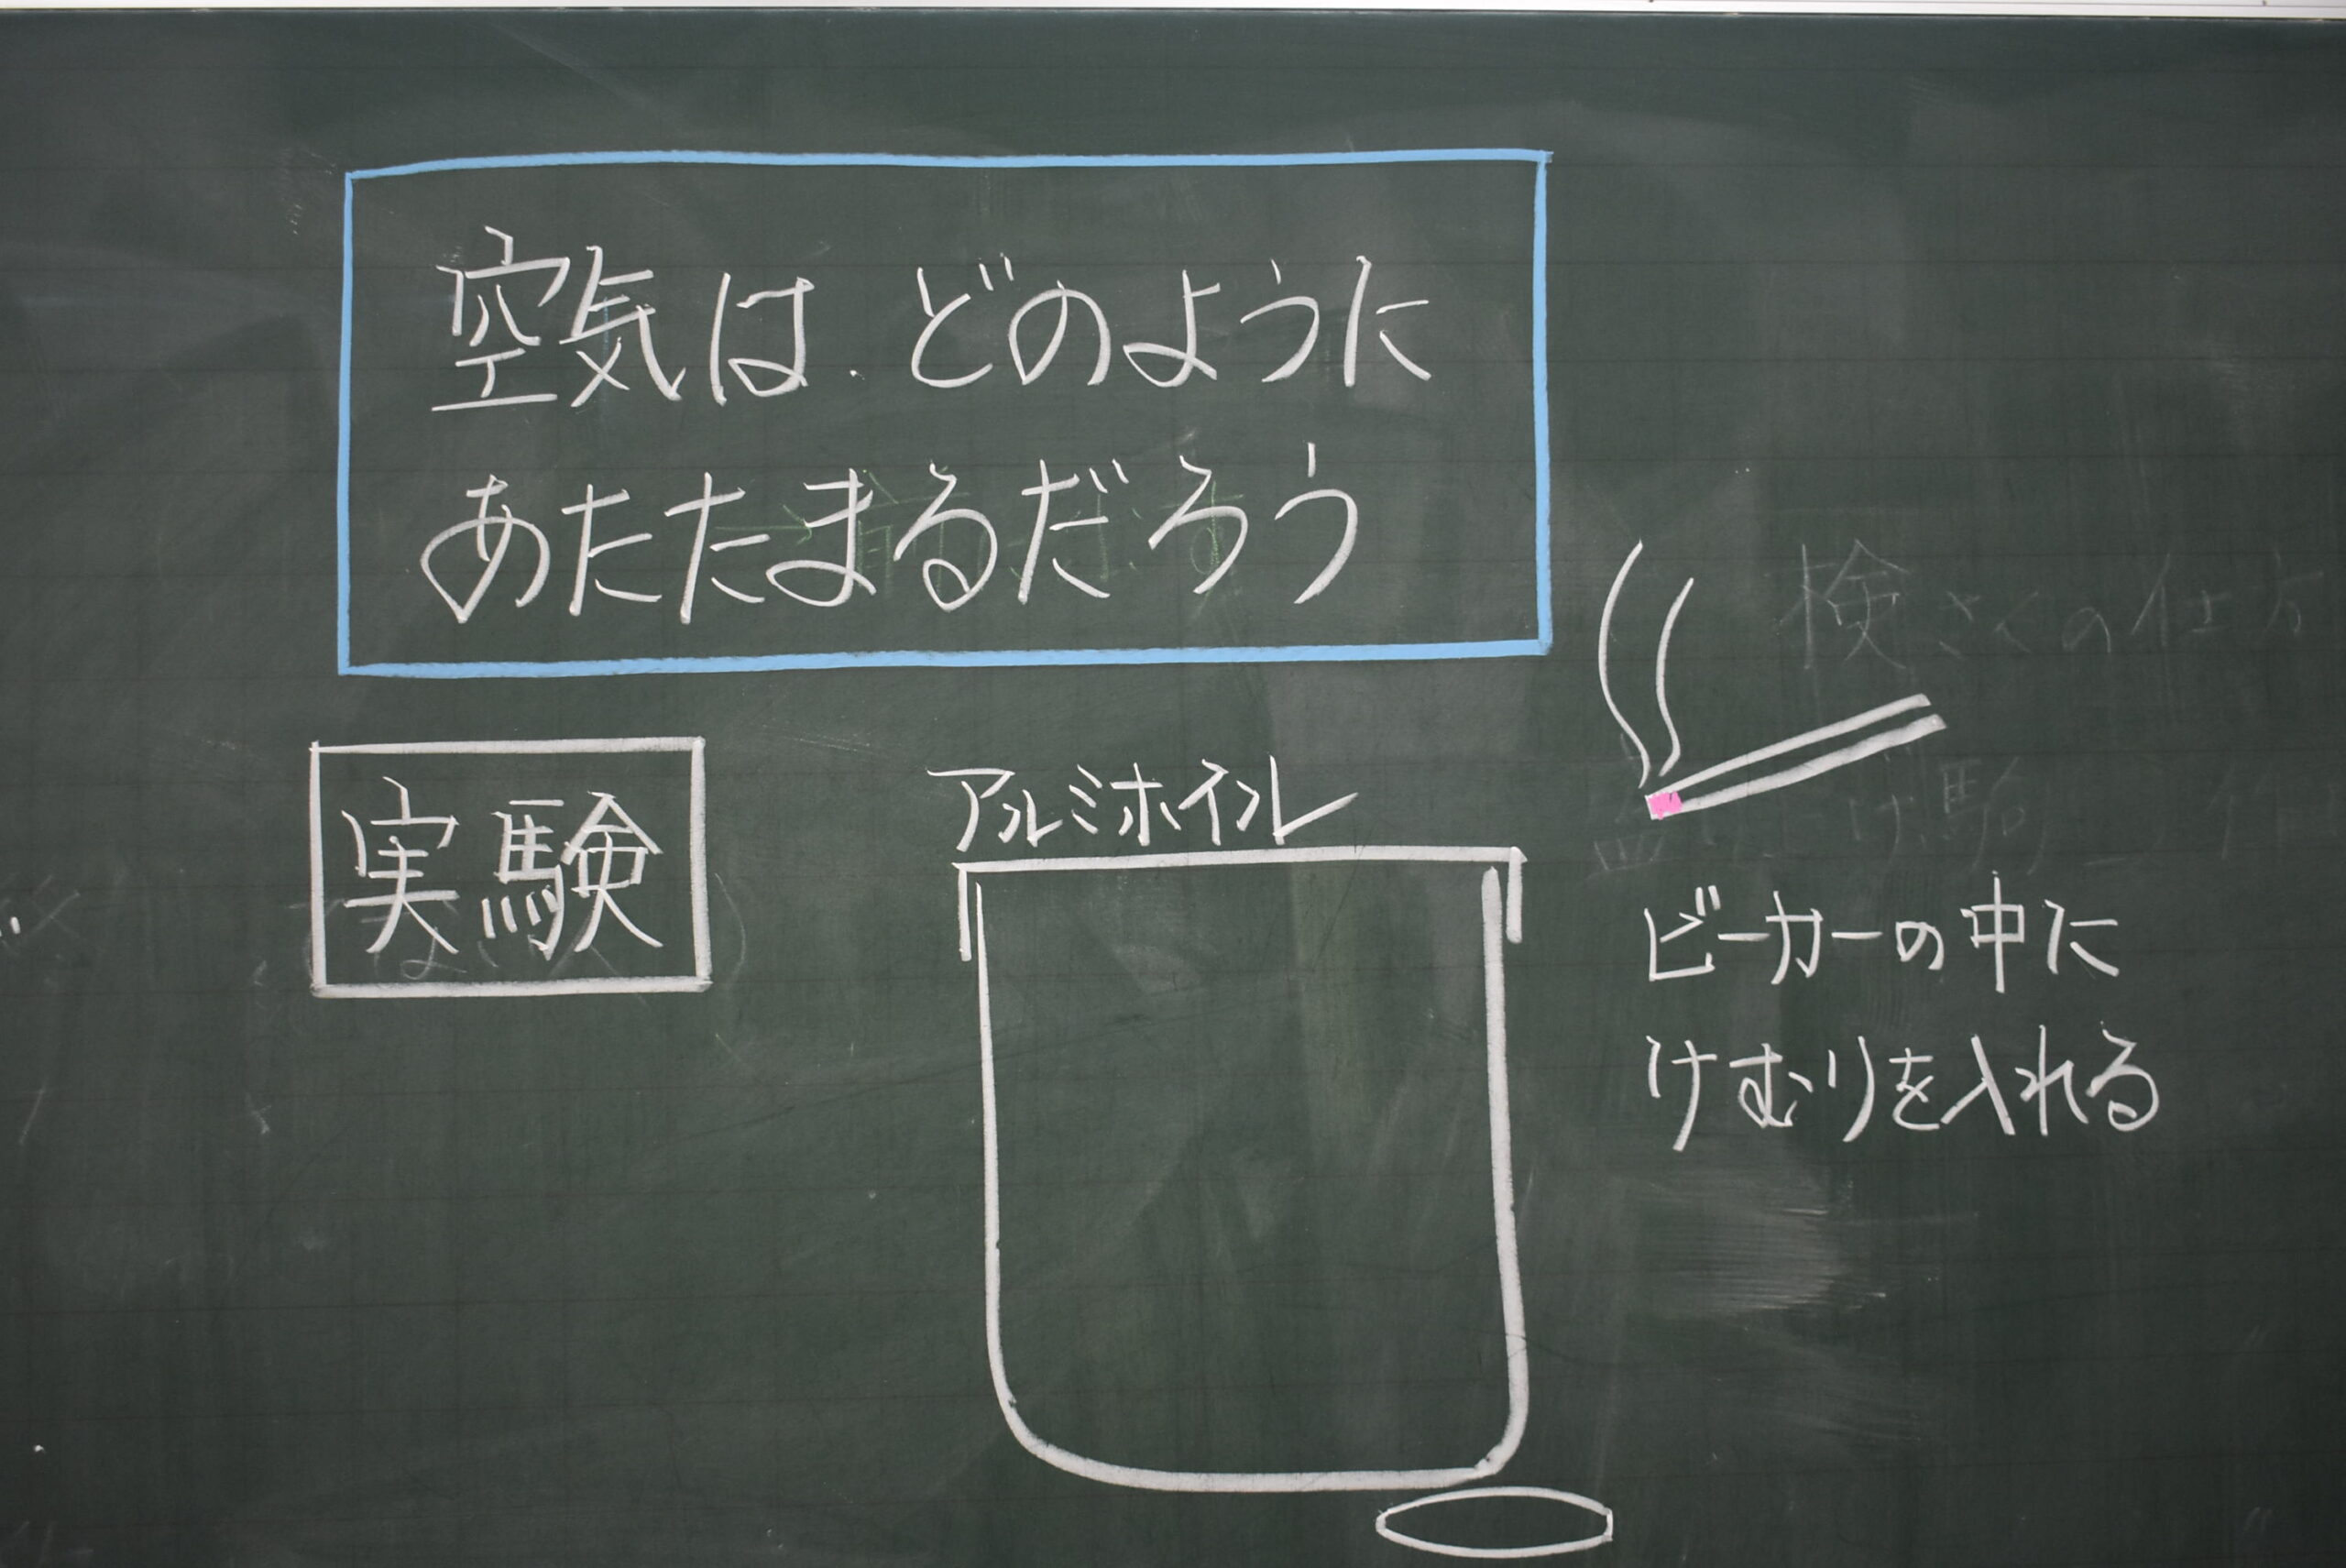 空気は、どのように
あたたまるだろう
実験
アルミホイル
ビーカーの中に
けむりを入れる